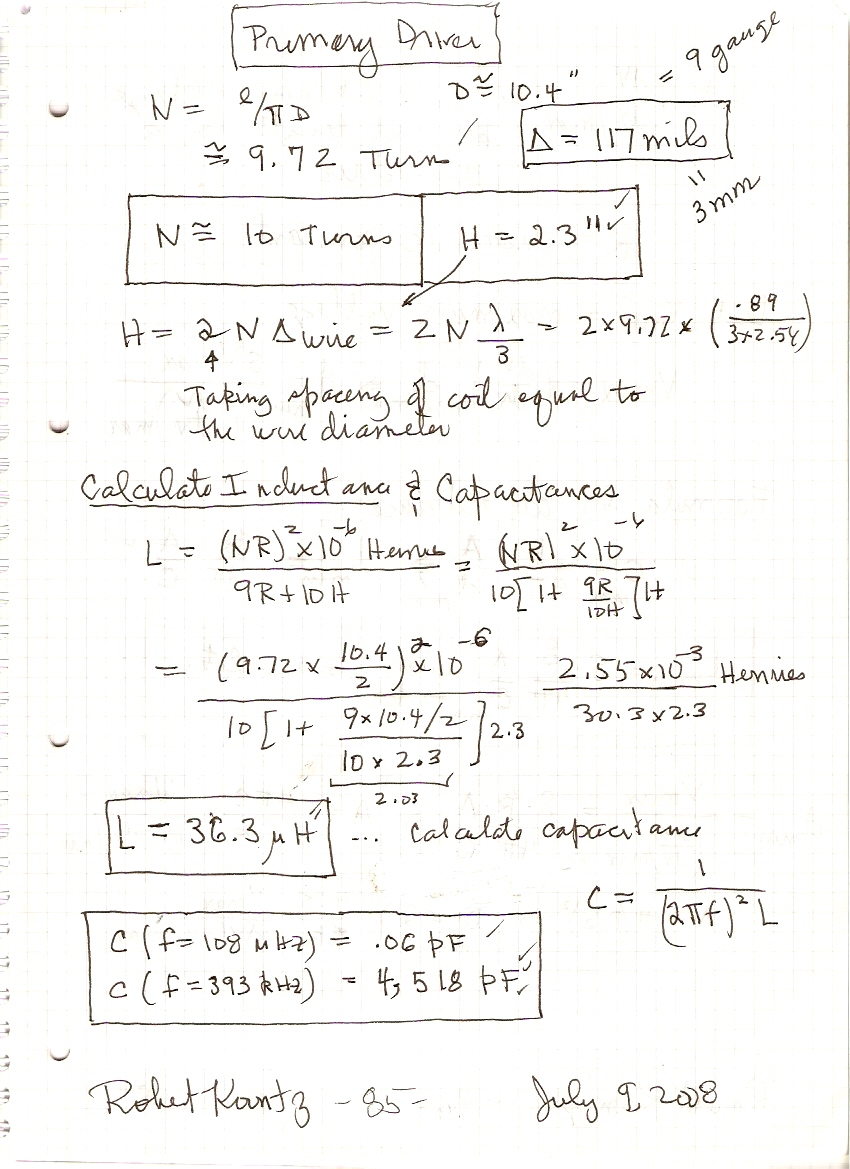 Primary Driver
N = ℓ/πD D ≅ 10.4" = 9 gauge
≅ 9.72 Turn ✓ Δ = 117 mils
" 3mm
N ≅ 10 Turns H = 2.3" ✓✓
H = 2 N Δwire = 2 N λ/3 = 2 × 9.72 × (.89/(3×2.54))
Taking spacing of coil equal to
the wire diameter
Calculate Inductance & Capacitances
L = (NR)² × 10⁻⁶ Henries / (9R + 10H) = (NR)² × 10⁻⁶ / (10[1 + 9R/10H]H)
= (9.72 × 10.4/2)² × 10⁻⁶ / (10[1 + (9×10.4/2)/(10 × 2.3)]2.3) 2.55×10⁻³ Henries / (30.3 × 2.3)
2.03
L = 36.3 μH ✓ ... calculate capacitance
C = 1/((2πf)² L)
C (f = 108 MHz) = .06 pF ✓
C (f = 393 kHz) = 4,518 pF ✓✓✓
Robert Kountz - 85 - July 9, 2008